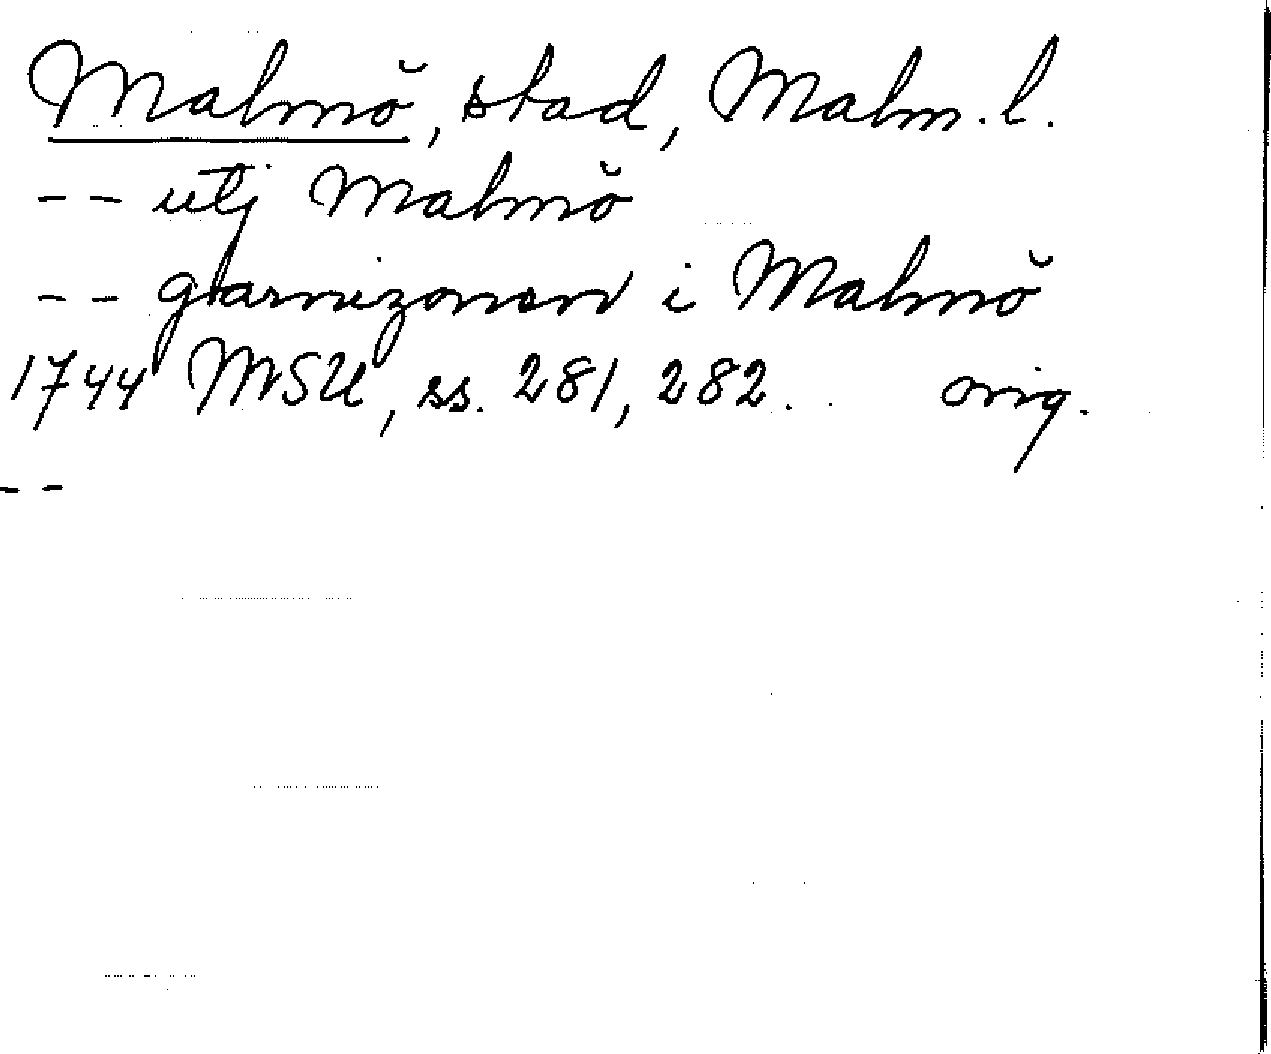 Malmö, stad, Malm. l.
-- utj Malmö
-- guarnizonen i Malmö
1744 MSU, ss. 281, 282. orig.
--